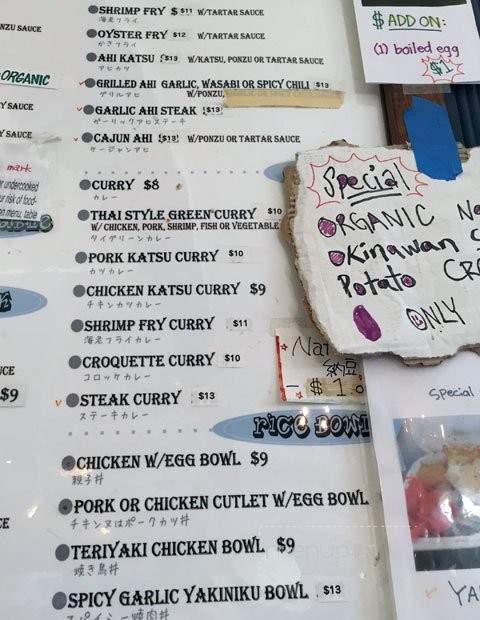 SHRIMP FRY $11 W/TARTAR SAUCE
海老フライ
OYSTER FRY $12 W/TARTAR SAUCE
かきフライ
AHI KATSU $13 W/KATSU, PONZU OR TARTAR SAUCE
アヒカツ
GRILLED AHI GARLIC, WASABI OR SPICY CHILI $13
グリルアヒ W/PONZU,
GARLIC AHI STEAK $13
ガーリックアヒステーキ
CAJUN AHI $13 W/PONZU OR TARTAR SAUCE
ケージャンアヒ
CURRY $8
カレー
THAI STYLE GREEN CURRY $10
W/ CHICKEN, PORK, SHRIMP, FISH OR VEGETABLE
タイグリーンカレー
PORK KATSU CURRY $10
カツカレー
CHICKEN KATSU CURRY $9
チキンカツカレー
SHRIMP FRY CURRY $11
海老フライカレー
CROQUETTE CURRY $10
コロッケカレー
STEAK CURRY $13
ステーキカレー
RICE BOWL
CHICKEN W/EGG BOWL $9
親子丼
PORK OR CHICKEN CUTLET W/EGG BOWL
チキン又はポークカツ丼
TERIYAKI CHICKEN BOWL $9
焼き鳥丼
SPICY GARLIC YAKINIKU BOWL $13
スパイシー焼肉丼
NZU SAUCE
ORGANIC
Y SAUCE
Y SAUCE
mark
or undercooked
your risk of food-
en menu, table
UCE
$9
CE
$ ADD ON:
(1) boiled egg
$1
Special
ORGANIC
OKinawan
Potato
ONLY
Nat
納豆
Special
YA